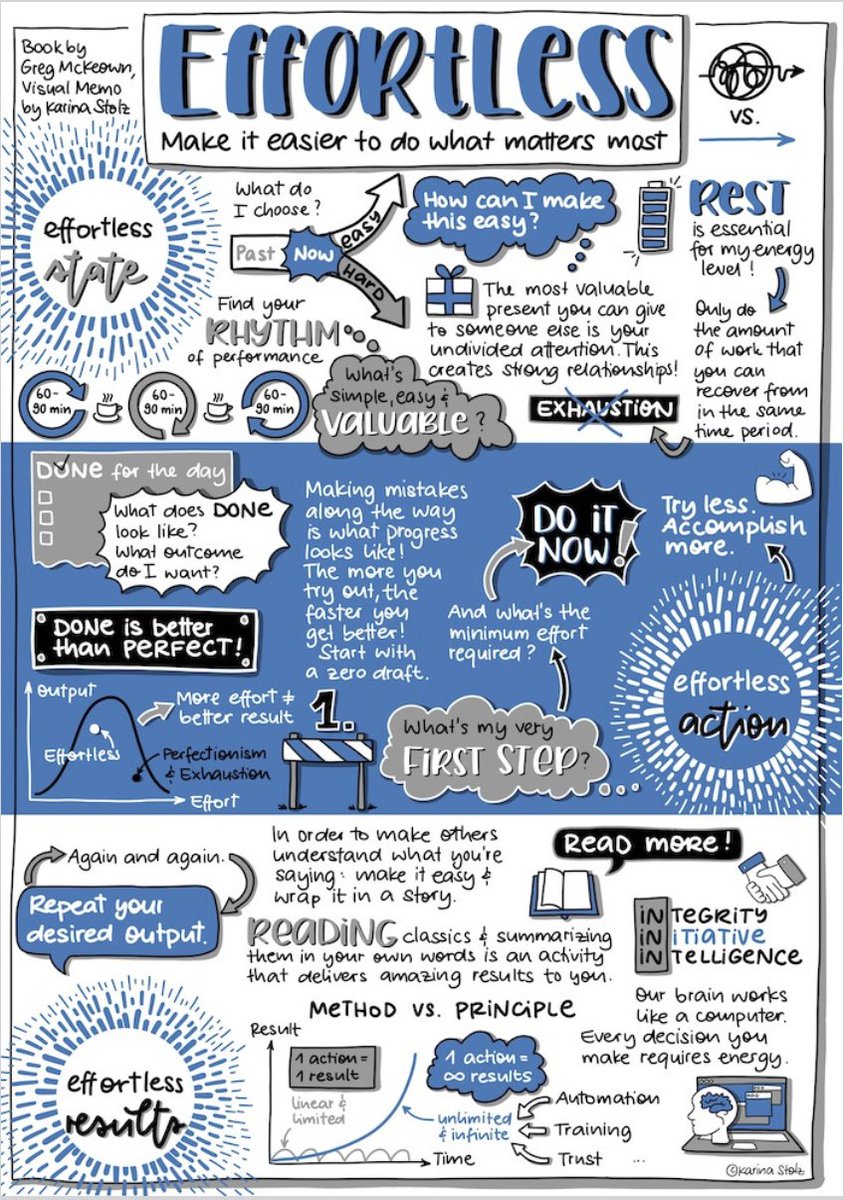 Book by
Greg McKeown,
Visual Memo
by Karina Stolz
EFFORTLESS
Make it easier to do what matters most
vs.
effortless
state
What do
I choose?
Past
Now
easy
HARD
How can I make
this easy?
REST
is essential
for my energy
level!
Find your
RHYTHM
of performance
The most valuable
present you can give
to someone else is your
undivided attention. This
creates strong relationships!
Only do
the amount
of work that
you can
recover from
in the same
time period.
60-
90 min
60-
90 min
60-
90 min
What's
simple, easy &
VALUABLE?
EXHAUSTION
DONE for the day
What does DONE
look like?
What outcome
do I want?
Making mistakes
along the way
is what progress
looks like!
The more you
try out, the
faster you
get better!
Start with
a zero draft.
DO IT
NOW!
Try less.
Accomplish
more.
And what's the
minimum effort
required?
DONE is better
than PERFECT!
Output
More effort ≠
better result
Effortless
Perfectionism
& Exhaustion
Effort
1.
What's my very
FIRST STEP?
...
effortless
action
Again and again.
Repeat your
desired output.
In order to make others
understand what you're
saying: make it easy &
wrap it in a story.
READ MORE!
READING classics & summarizing
them in your own words is an activity
that delivers amazing results to you.
INTEGRITY
INITIATIVE
INTELLIGENCE
Our brain works
like a computer.
Every decision you
make requires energy.
effortless
results
METHOD VS. PRINCIPLE
Result
1 action =
1 result
linear &
limited
1 action =
∞ results
unlimited
& infinite
Automation
Training
Trust ...
Time
©Karina Stolz